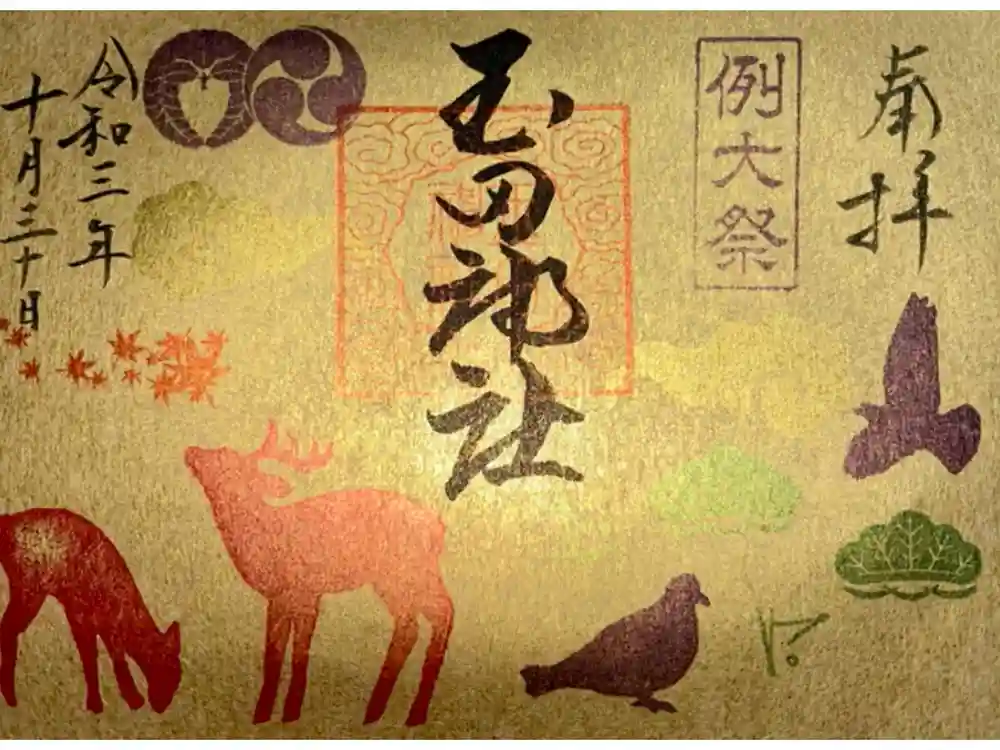 奉拝
例大祭
玉田神社
令和三年
十月三十日